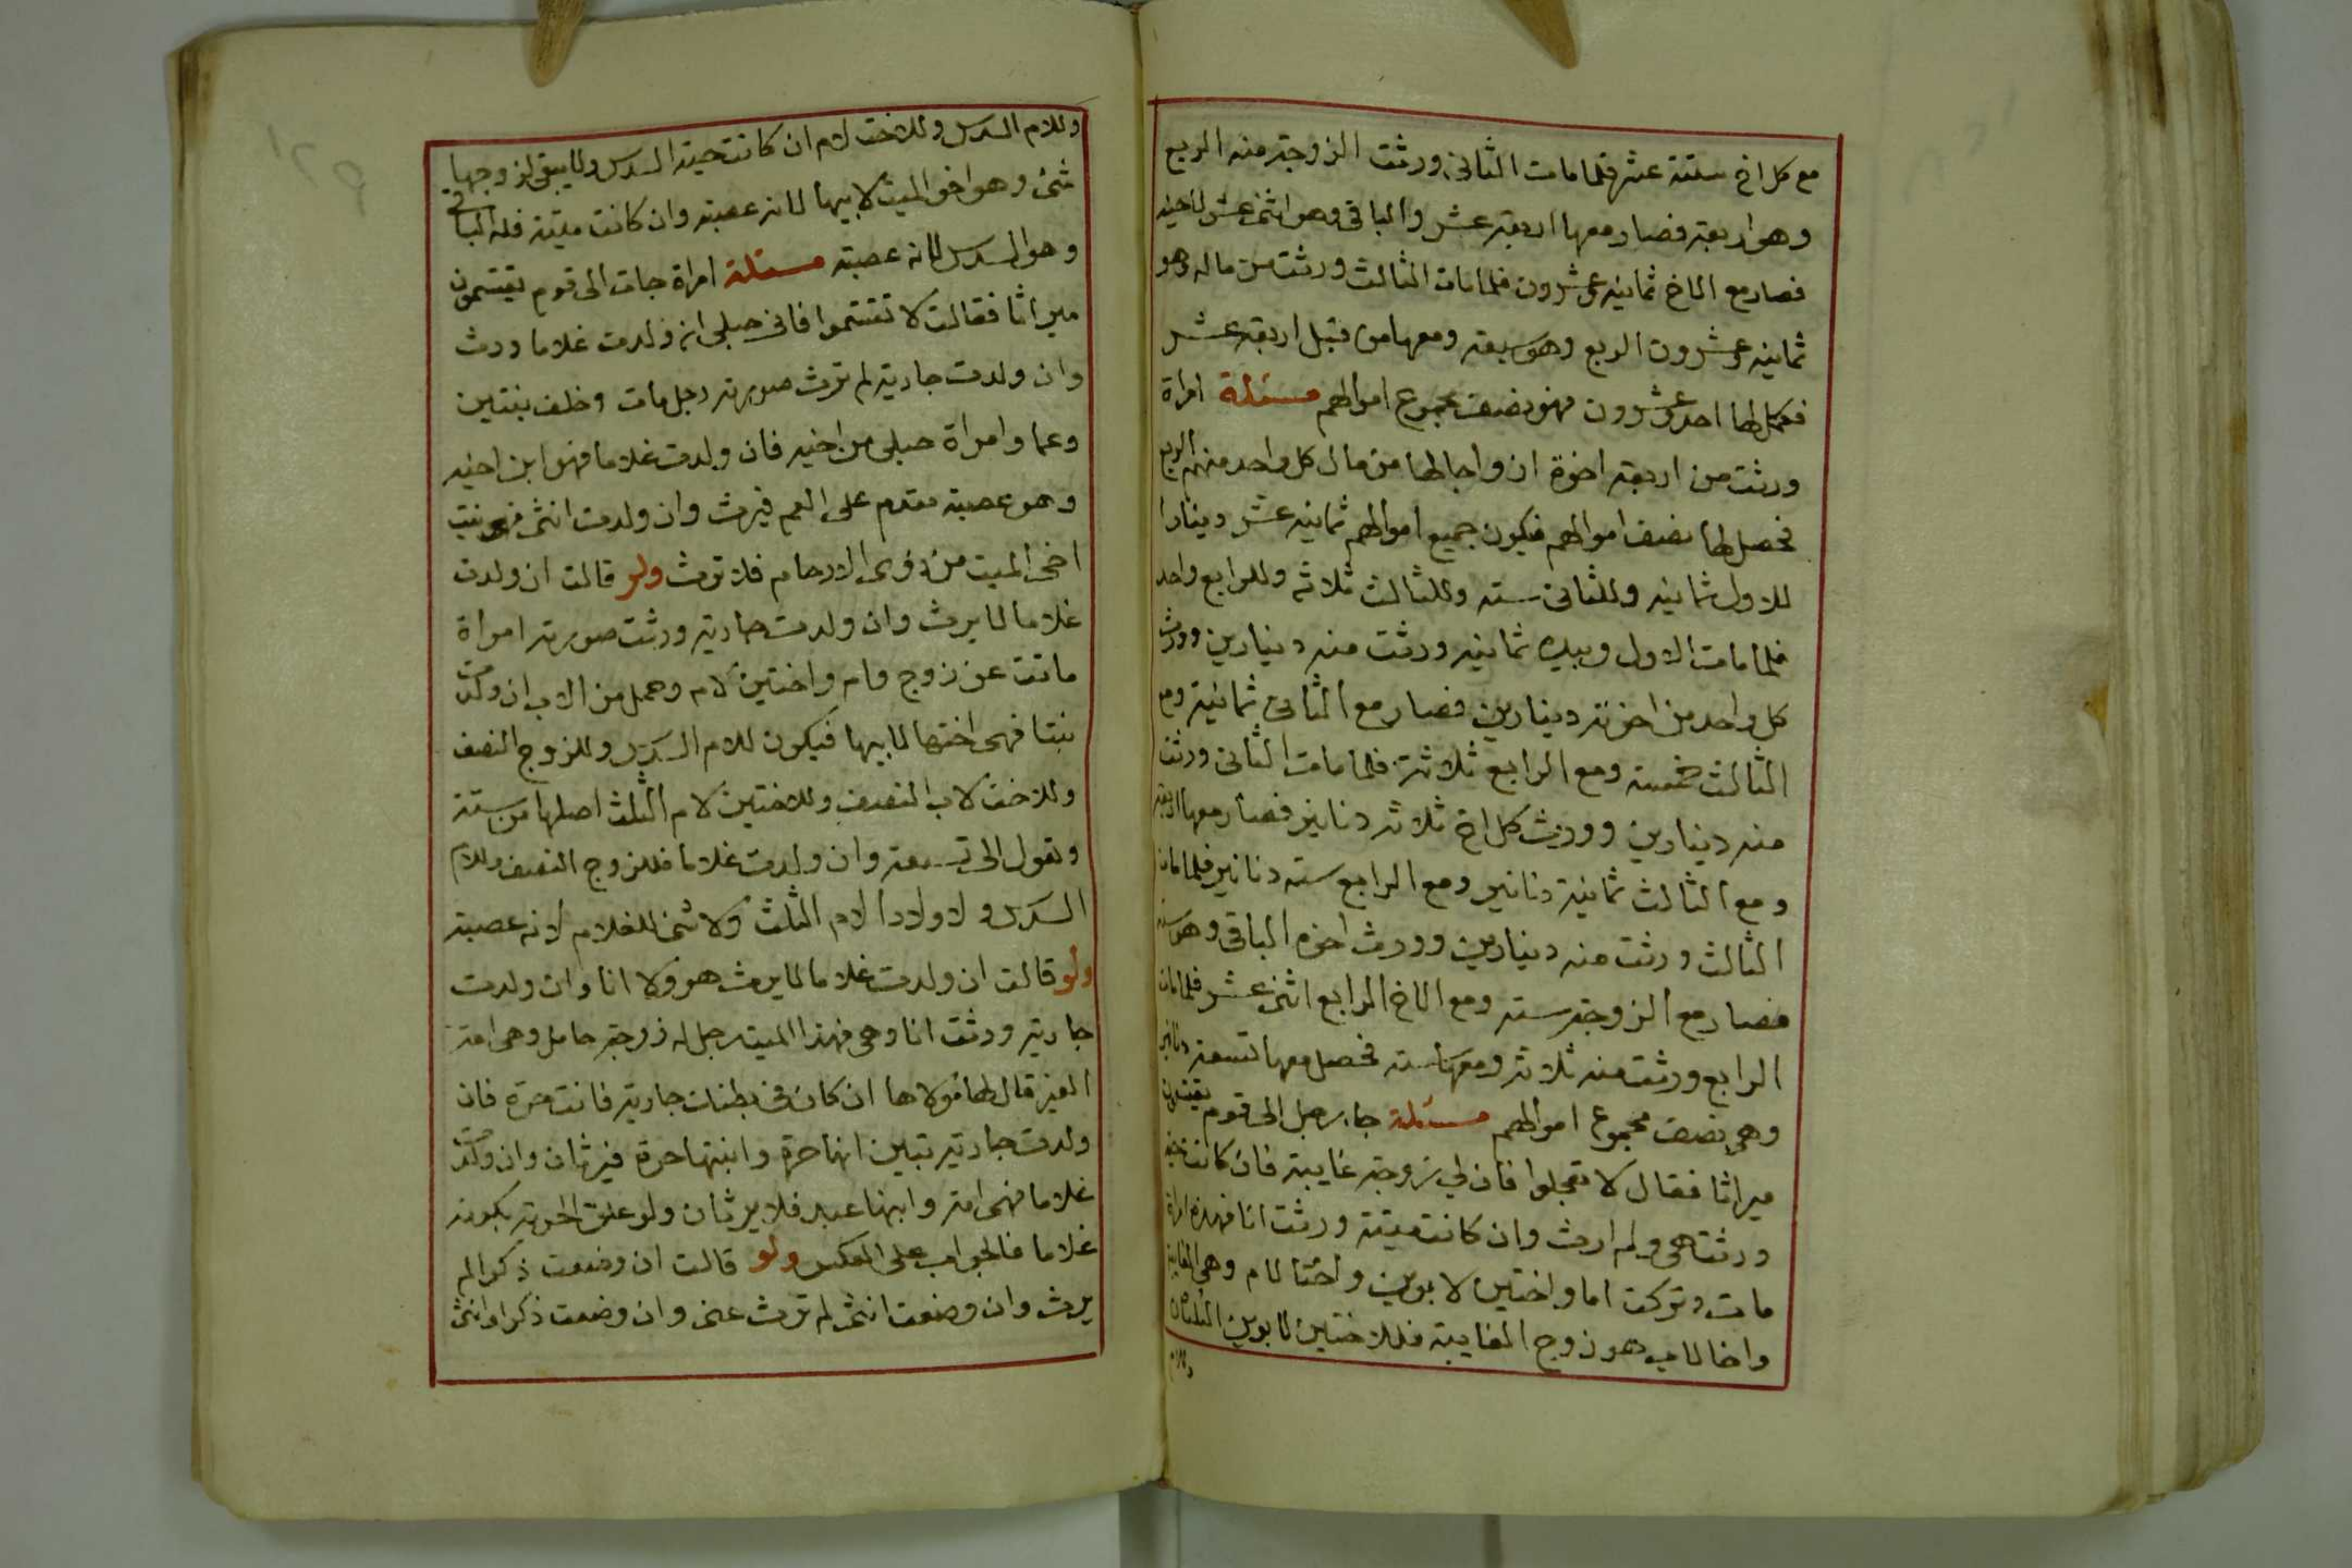 مع كل اخ ستة عشر فلما مات الثانى ورثت الزوجة منه الربع
وهى اربعة فصار معها اربعة عشر والباقى وهو اثنى عشر لاخيه
فصار مع الاخ ثمانية وعشرون فلما مات الثالث ورثت من ماله وهو
ثمانية وعشرون الربع وهو سبعة ومعها من قبل اربعة عشر
فكمل لها احد وعشرون فهو نصف مجموع اموالهم مسئلة امراة
ورثت من اربعة اخوة ازواجا لها من مال كل واحد منهم الربع
فحصل لها نصف اموالهم فيكون جميع اموالهم ثمانية عشر دينارا
للاول ثمانية وللثانى ستة وللثالث ثلاثة وللرابع واحد
فلما مات الاول وبيده ثمانية ورثت منه دينارين وورث
كل واحد من اخوته دينارين فصار مع الثانى ثمانية ومع
الثالث خمسة ومع الرابع ثلاثة فلما مات الثانى ورثت
منه دينارين وورث كل اخ ثلاثة دنانير فصار معها اربعة
ومع الثالث ثمانية دنانير ومع الرابع ستة دنانير فلما مات
الثالث ورثت منه دينارين وورث اخوه الباقى وهو ستة
فصار مع الزوجة ستة ومع الاخ الرابع اثنى عشر فلما مات
الرابع ورثت منه ثلاثة ومعها ستة فحصل معها تسعة دنانير
وهى نصف مجموع اموالهم مسئلة جا رجل الى قوم يقتسمون
ميراثا فقال لا تعجلوا فان لي زوجة غايبة فان كانت حية
ورثت هى ولم ارث وان كانت ميتة ورثت انا فهذه امراة
ماتت وتركت اما واختين لابوين واختا لام وهى الغايبة
واخا لاب هو زوج الغايبة فللاختين لابوين الثلثان
وللام
وللام السدس وللاخت لام ان كانت حية السدس ولا يبقى لزوجها
شئ وهو اخو الميت لابيها لانه عصبة وان كانت ميتة فله الباقى
وهو السدس لانه عصبة مسئلة امراة جات الى قوم يقتسمون
ميراثا فقالت لا تقتسموا فانى حبلى ان ولدت غلاما ورث
وان ولدت جارية لم ترث صورته رجل مات وخلف بنتين
وعما وامراة حبلى من اخيه فان ولدت غلاما فهو ابن اخيه
وهو عصبة مقدم على العم فيرث وان ولدت انثى فهى بنت
اخى الميت من ذوى الارحام فلا ترث ولو قالت ان ولدت
غلاما لا يرث وان ولدت جارية ورثت صورته امراة
ماتت عن زوج وام واختين لام وحمل من الاب ان ولدت
بنتا فهى اختها لابيها فيكون للام السدس وللزوج النصف
وللاخت لاب النصف وللاختين لام الثلث اصلها من ستة
وتعول الى تسعة وان ولدت غلاما فللزوج النصف وللام
السدس ولاولاد الام الثلث ولا شئ للغلام لانه عصبة
ولو قالت ان ولدت غلاما لا يرث هو ولا انا وان ولدت
جارية ورثت انا وهى فهذا الميت رجل له زوجة حامل وهى امة
الغير قال لها مولاها ان كان فى بطنك جارية فانت حرة فان
ولدت جارية تبين انها حرة وابنتها حرة فيرثان وان ولدت
غلاما فهى امة وابنها عبد فلا يرثان ولو علق الحرية بكونه
غلاما فالجواب على العكس ولو قالت ان وضعت ذكرا لم
يرث وان وضعت انثى لم ترث عنى وان وضعت ذكرا وانثى